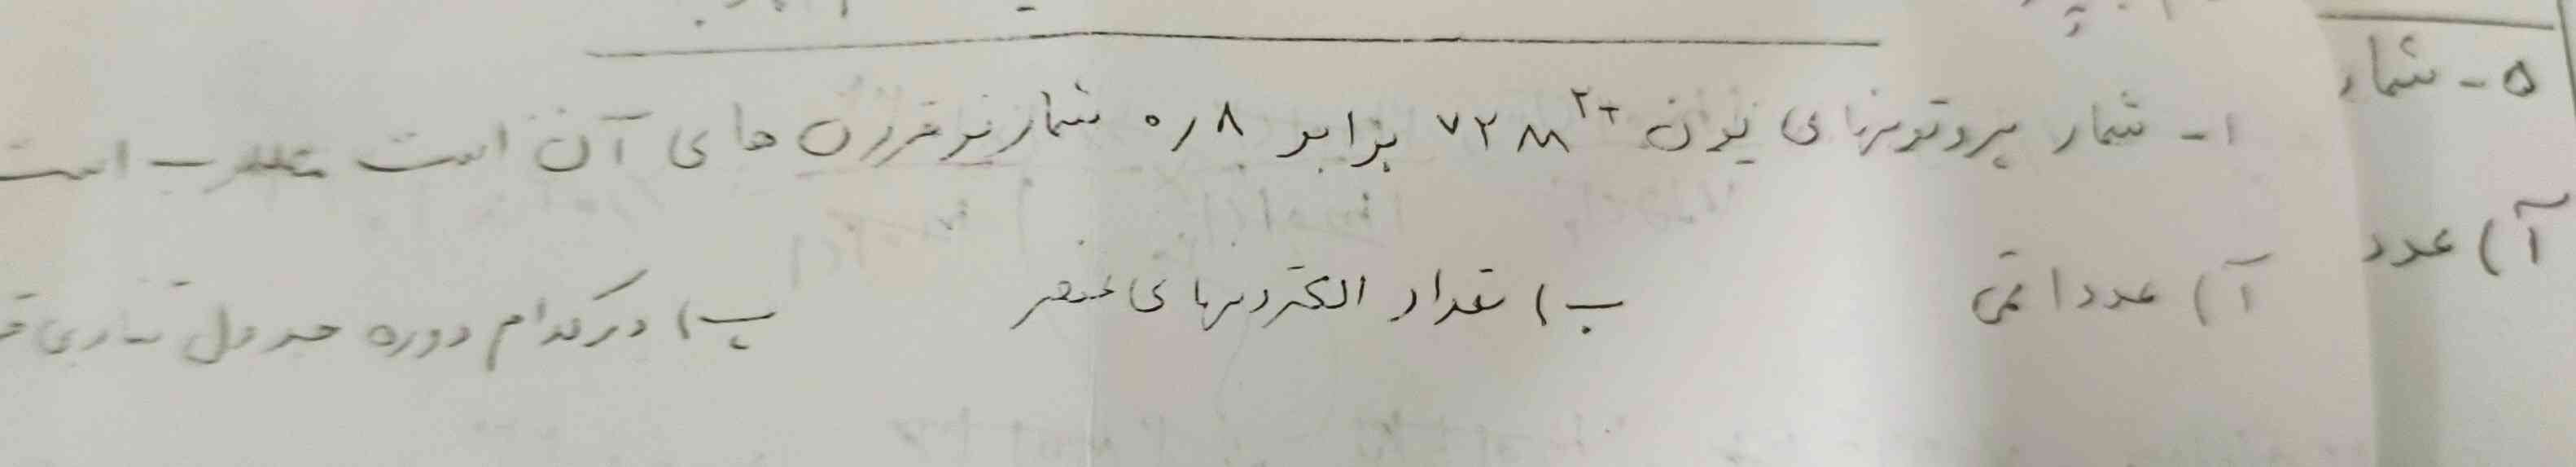 ۵ - شمار
۱- شمار پروتونهای یون ۷۲M۲+ برابر ۰٫۸ شمار نوترون های آن است مطلوب است
آ) عدد
آ) عدد اتمی ب) تعداد الکترونهای عنصر پ) در کدام دوره جدول تناوبی ق